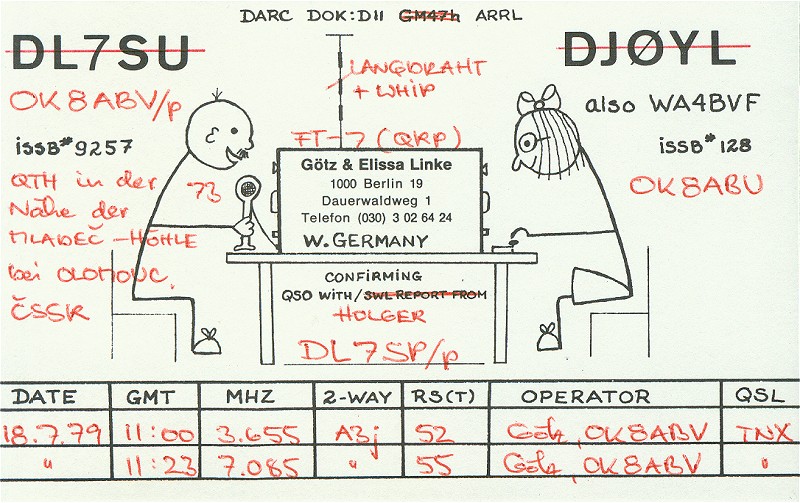 DARC DOK:D11 GM47h ARRL
DL7SU
DJØYL
OK8ABV/p
LANGDRAHT
+ WHIP
also WA4BVF
FT-7 (QRP)
ISSB# 9257
ISSB# 128
QTH in der
Nähe der
MLADEČ-HÖHLE
bei OLOMOUC.
ČSSR
73
OK8ABU
Götz & Elissa Linke
1000 Berlin 19
Dauerwaldweg 1
Telefon (030) 3 02 64 24
W. GERMANY
CONFIRMING
QSO WITH/SWL REPORT FROM
HOLGER
DL7SP/p
DATE GMT MHZ 2-WAY RS(T) OPERATOR QSL
18.7.79 11:00 3.655 A3j 52 Götz, OK8ABV TNX
" 11:23 7.085 " 55 Götz, OK8ABV "